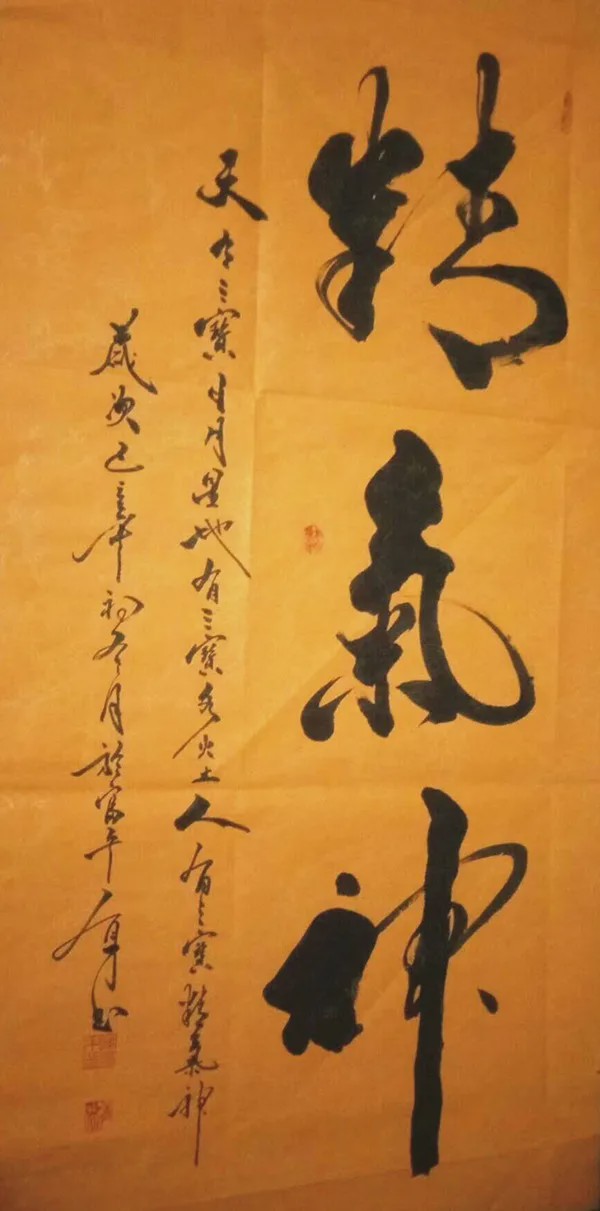 精氣神
天有三寳日月星地有三寳水火土人有三寳精氣神
歲次己亥年初冬月於富平
書